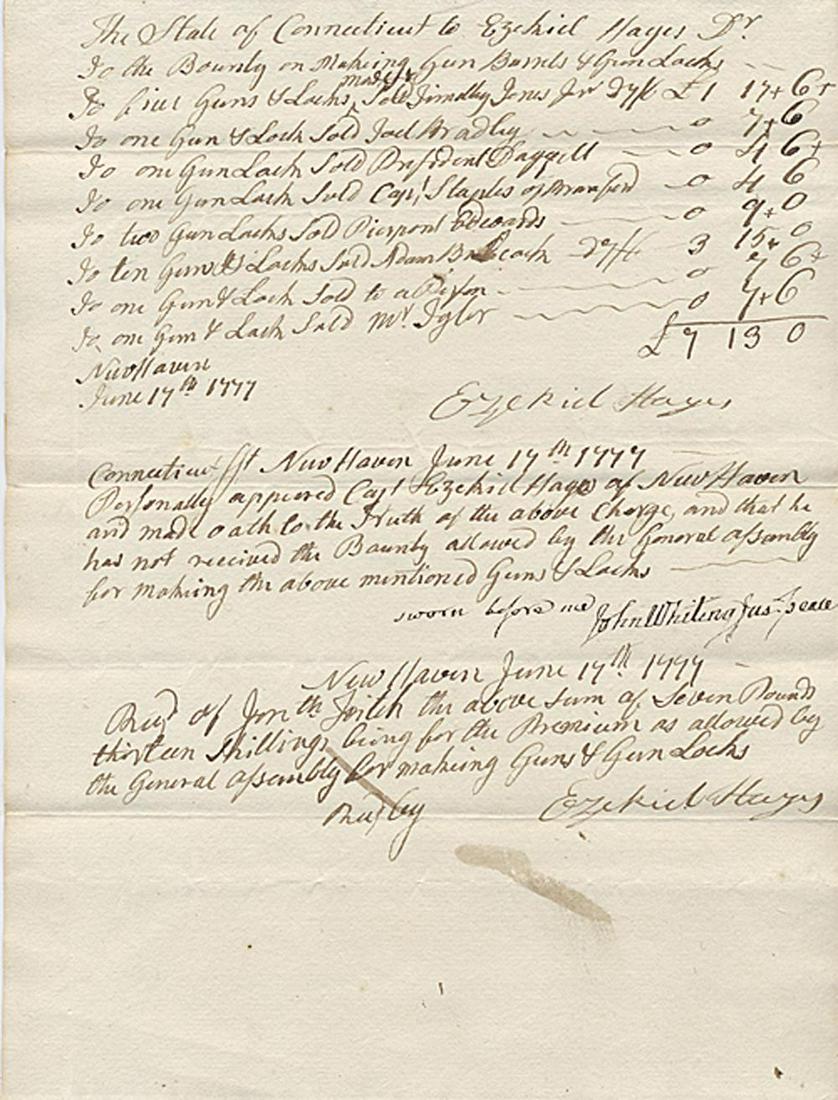 The State of Connecticut to Ezekiel Hayes Dr
To the Bounty on Making Gun Barrels & Gun Locks
To five Guns & Locks made & Sold Timothy Jones Jnr @ 7/6 £1 17 6
To one Gun & Lock Sold Joel Bradley 0 7 6
To one Gun Lock Sold President Daggett 0 4 6
To one Gun Lock Sold Capt Staples of Branford 0 4 6
To two Gun Locks Sold Pierpont Edwards 0 9 0
To ten Guns & Locks Sold Adam Babcock @ 7/6 3 15 0
To one Gun & Lock Sold to a 0 7 6
To one Gun & Lock Sold Mr Tyler 0 7 6
£7 13 0
New Haven
June 17th 1777
Ezekiel Hayes
Connecticut Sst New Haven June 17th 1777
Personally appeered Capt Ezekiel Hayes of New Haven
and made oath to the Truth of the above Charge, and that he
has not received the Bounty allowed by the General assembly
for making the above mentioned Guns & Locks
sworn before me John Whiting Jus. peace
New Haven June 17th 1777
Recd of Jonth Fitch the above sum of Seven Pounds
thirteen Shillings being for the Premium as allowed by
the General assembly for making Guns & Gun Locks
Ezekiel Hayes